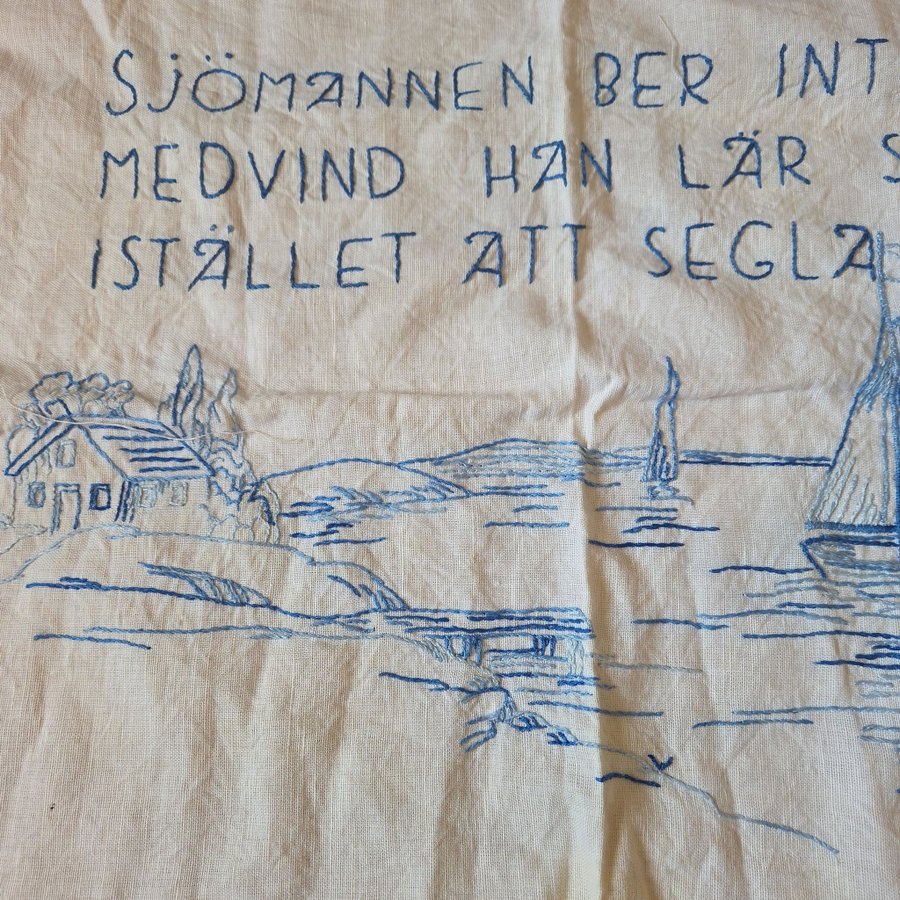 SJÖMANNEN BER INT
MEDVIND HAN LÄR S
ISTÄLLET ATT SEGLA